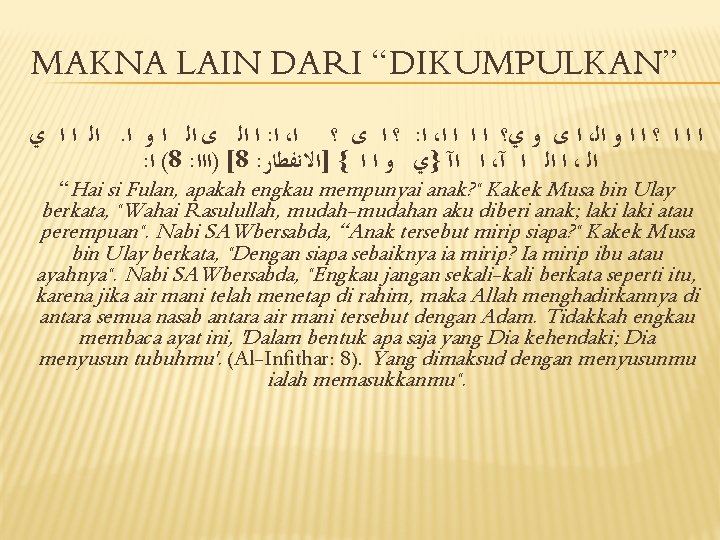 MAKNA LAIN DARI “DIKUMPULKAN”
ﺍ ﺍ ﺍ ؟ ﺍ ﺍ ﻭ ﺍﻟ، ﺍ ﻯ ﻭ ﻱ؟ ﺍ ﺍ ﺍ ﺍ، ﺍ: ؟ ﺍ ﻯ ؟ ﺍ، ﺍ: ﺍ ﺍﻟ ﻯ ﺍﻟ ﺍ ﻭ ﺍ. ﺍﻟ ﺍ ﺍ ﻱ
ﺍﻟ ، ﺍ ﺍﻟ ﺍ ﺁ، ﺍ ﺍﺁ {ﻱ ﻭ ﺍ ﺍ } [ﺍﻻﻧﻔﻄﺎﺭ: 8] (ﺍﺍﺍ: 8) ﺍ:
“Hai si Fulan, apakah engkau mempunyai anak?" Kakek Musa bin Ulay
berkata, "Wahai Rasulullah, mudah-mudahan aku diberi anak; laki laki atau
perempuan". Nabi SAWbersabda, “Anak tersebut mirip siapa?" Kakek Musa
bin Ulay berkata, "Dengan siapa sebaiknya ia mirip? Ia mirip ibu atau
ayahnya". Nabi SAWbersabda, "Engkau jangan sekali-kali berkata seperti itu,
karena jika air mani telah menetap di rahim, maka Allah menghadirkannya di
antara semua nasab antara air mani tersebut dengan Adam. Tidakkah engkau
membaca ayat ini, 'Dalam bentuk apa saja yang Dia kehendaki; Dia
menyusun tubuhmu'. (Al-Infithar: 8). Yang dimaksud dengan menyusunmu
ialah memasukkanmu".